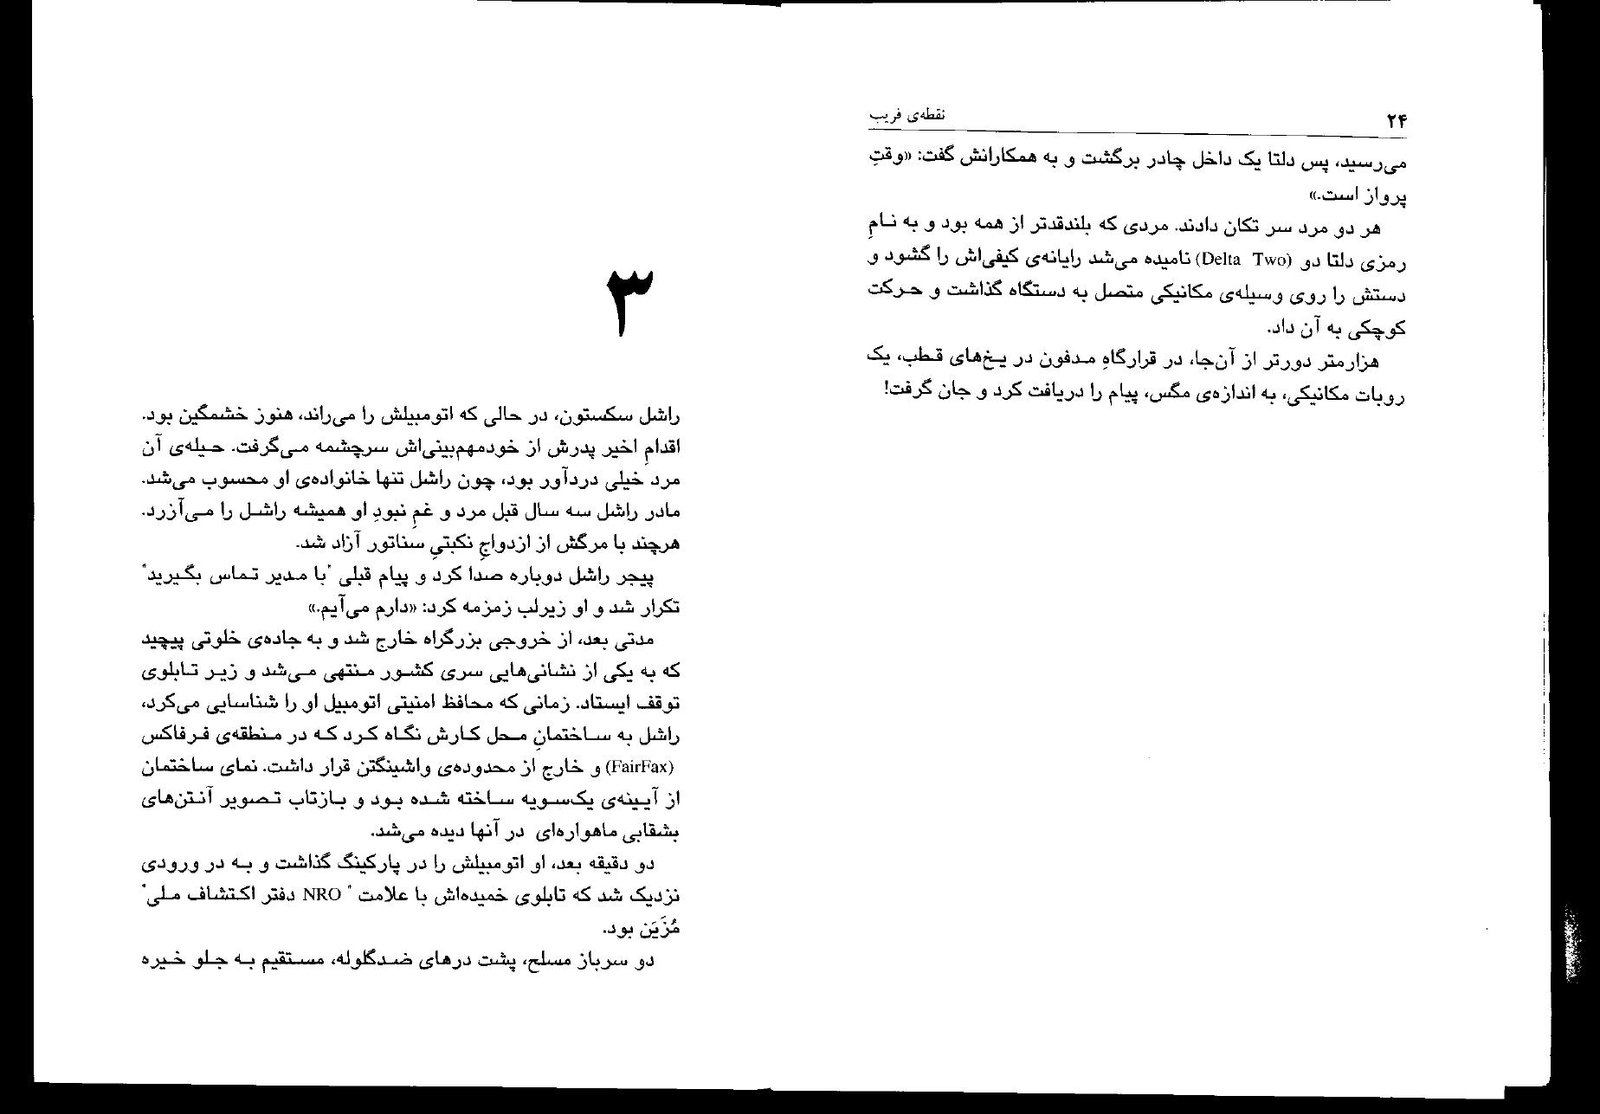 ۲۴
نقطه‌ی فریب
می‌رسید، پس دلتا یک داخل چادر برگشت و به همکارانش گفت: «وقتِ
پرواز است.»
هر دو مرد سر تکان دادند. مردی که بلندقدتر از همه بود و به نامِ
رمزی دلتا دو (Delta Two) نامیده می‌شد رایانه‌ی کیفی‌اش را گشود و
دستش را روی وسیله‌ی مکانیکی متصل به دستگاه گذاشت و حرکت
کوچکی به آن داد.
هزارمتر دورتر از آن‌جا، در قرارگاهِ مدفون در یخ‌های قطب، یک
روبات مکانیکی، به اندازه‌ی مگس، پیام را دریافت کرد و جان گرفت!
۳
راشل سکستون، در حالی که اتومبیلش را می‌راند، هنوز خشمگین بود.
اقدامِ اخیر پدرش از خودمهم‌بینی‌اش سرچشمه می‌گرفت. حیله‌ی آن
مرد خیلی دردآور بود، چون راشل تنها خانواده‌ی او محسوب می‌شد.
مادر راشل سه سال قبل مرد و غمِ نبودِ او همیشه راشل را می‌آزرد.
هرچند با مرگش از ازدواجِ نکبتیِ سناتور آزاد شد.
پیجر راشل دوباره صدا کرد و پیام قبلی "با مدیر تماس بگیرید"
تکرار شد و او زیرلب زمزمه کرد: «دارم می‌آیم.»
مدتی بعد، از خروجی بزرگراه خارج شد و به جاده‌ی خلوتی پیچید
که به یکی از نشانی‌هایی سری کشور منتهی می‌شد و زیر تابلوی
توقف ایستاد. زمانی که محافظ امنیتی اتومبیل او را شناسایی می‌کرد،
راشل به ساختمانِ محل کارش نگاه کرد که در منطقه‌ی فرفاکس
(FairFax) و خارج از محدوده‌ی واشینگتن قرار داشت. نمای ساختمان
از آیینه‌ی یک‌سویه ساخته شده بود و بازتاب تصویر آنتن‌های
بشقابی ماهواره‌ای در آنها دیده می‌شد.
دو دقیقه بعد، او اتومبیلش را در پارکینگ گذاشت و به در ورودی
نزدیک شد که تابلوی خمیده‌اش با علامت " NRO دفتر اکتشاف ملی"
مُزَیَن بود.
دو سرباز مسلح، پشت درهای ضدگلوله، مستقیم به جلو خیره